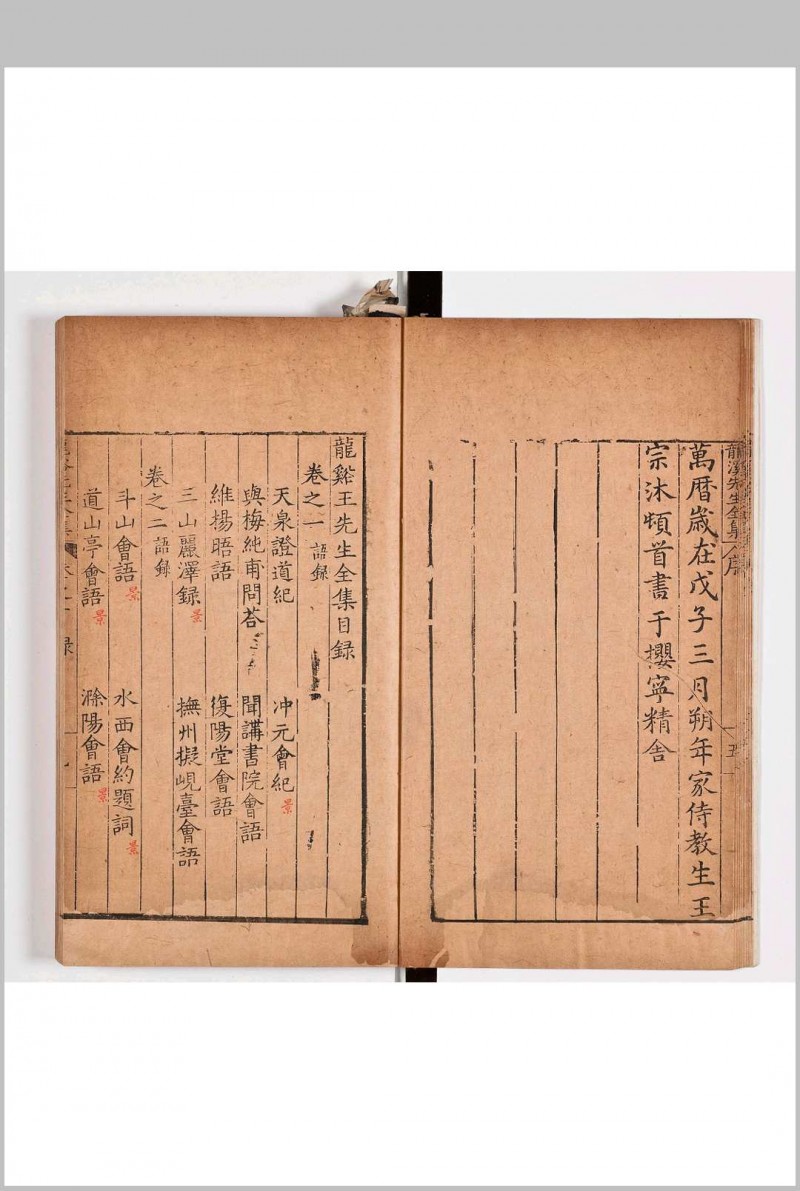 龍溪先生全集 序 五
萬曆歲在戊子三月朔年家侍教生王
宗沐頓首書于攖寧精舍
龍谿王先生全集目録
卷之一 語録
天泉證道紀 冲元會紀 景
與梅純甫問荅 聞講書院會語
維揚晤語 復陽堂會語
三山麗澤録 景 撫州擬峴臺會語
卷之二 語録
斗山會語 景 水西會約題詞 景
道山亭會語 景 滁陽會語 景